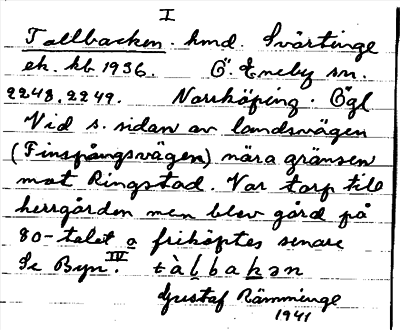 I
Tallbacken. hmd. Svärtinge
ek. kb 1936. Ö. Eneby sn.
2248. 2249. Norrköping. Ögl
Vid s. sidan av landsvägen
(Finspångsvägen) nära gränsen
mot Ringstad. Var torp till
herrgården men blev gård på
80-talet o friköptes senare
Se Byn. IV tàlbakən
Gustaf Rämminge
1941